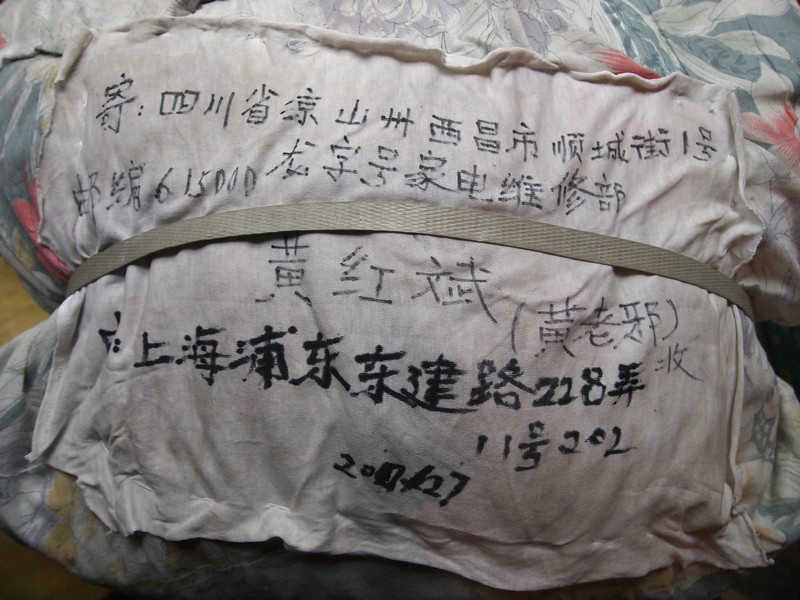 寄：四川省凉山州西昌市顺城街1号
邮编615000 龙字号家电维修部
黄红斌
（黄老邪）收
上海浦东东建路228弄
11号202